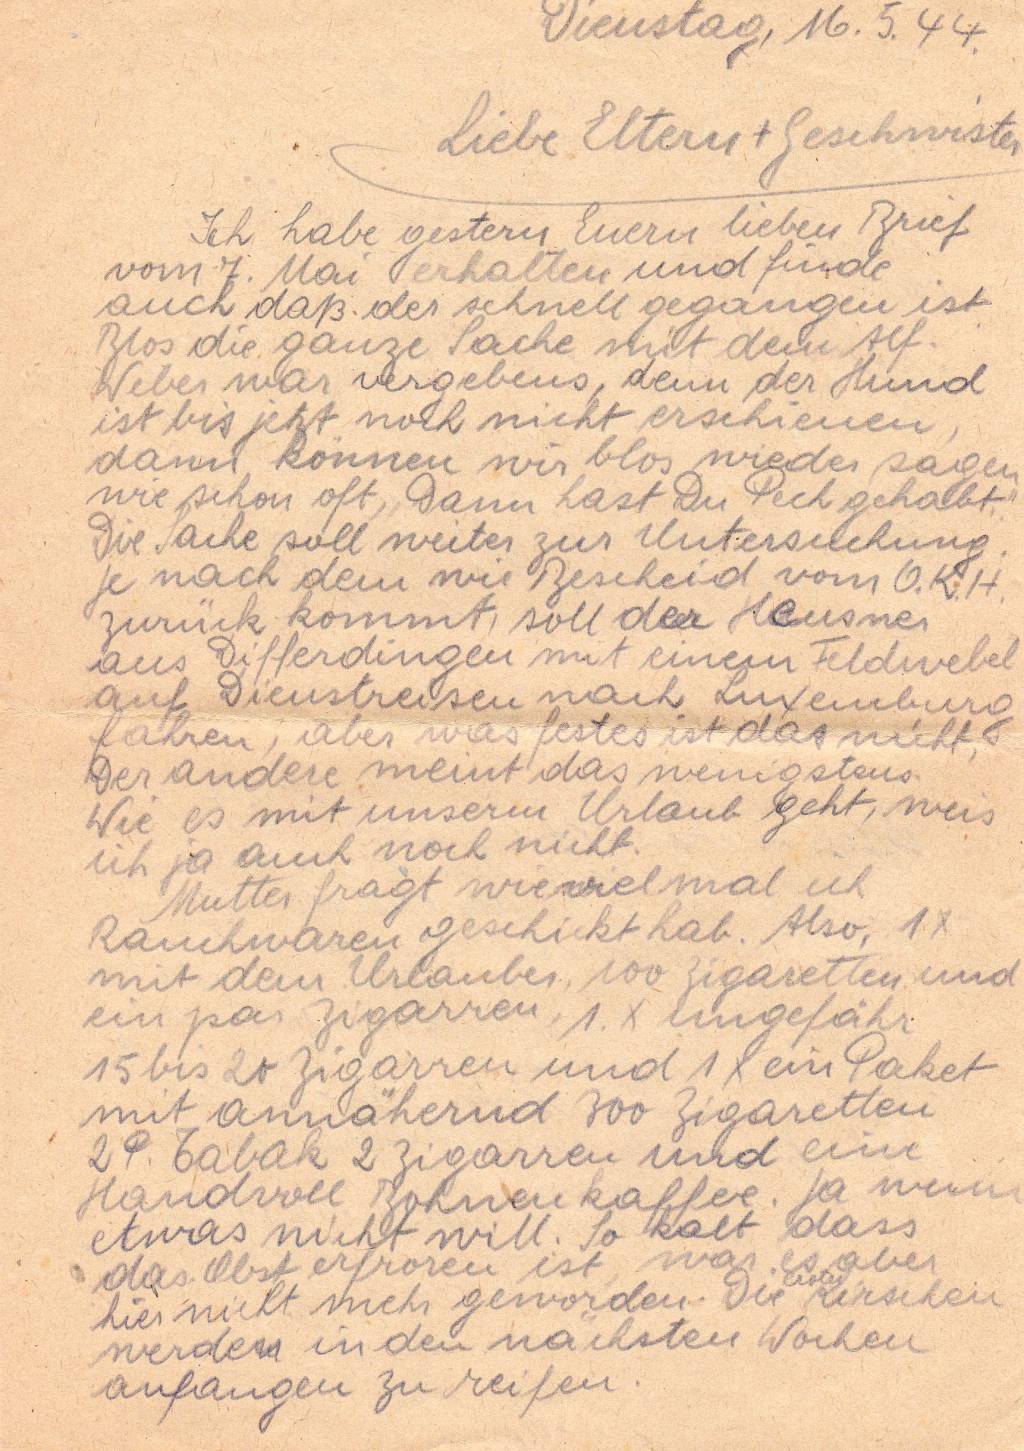 Dienstag, 16.5.44.
Liebe Eltern + Geschwister
Ich habe gestern Euern lieben Brief
vom 7. Mai erhalten und finde
auch daß der schnell gegangen ist
Blos die ganze Sache mit dem Alf.
Weber war vergebens, denn der Hund
ist bis jetzt noch nicht erschienen,
dann können wir blos wieder sagen
wie schon oft, „Dann hast Du Pech gehabt."
Die Sache soll weiter zur Untersuchung.
Je nach dem wie Bescheid vom O.K.H.
zurück kommt, soll der Heusner
aus Differdingen mit einem Feldwebel
auf Dienstreisen nach Luxemburg
fahren, aber was festes ist das nicht,
Der andere meint das wenigstens.
Wie es mit unserm Urlaub geht, weis
ich ja auch noch nicht.
Mutter fragt wievielmal ich
Rauchwaren geschickt hab. Also, 1 X
mit dem Urlauber, 100 Zigaretten und
ein par Zigarren, 1. X ungefähr
15 bis 20 Zigarren und 1 X ein Paket
mit annähernd 300 Zigaretten
2 P. Tabak 2 Zigarren und eine
Handvoll Bohnenkaffee. Ja wenn
etwas nicht will. So kalt dass
das Obst erfroren ist, war es aber
hier nicht mehr geworden. Die ersten Kirschen
werden in den nächsten Wochen
anfangen zu reifen.